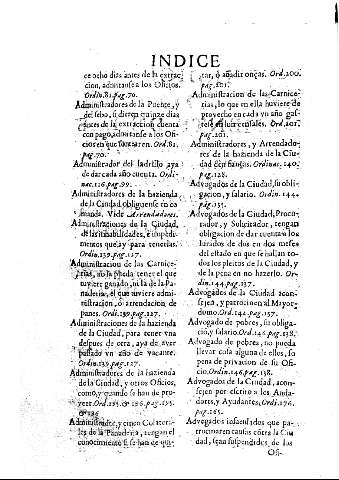 INDICE
ce ocho dias antes de la extrac
cion, adontanse a los Oficios.
Ordin.81.pag.70.
Administradores de la Puente, y
del sebo, si dieren quinze dias
antes de la extraccion cuenta
con pago, adontanse a los Ofi
cios en que Ord.81.
pag.70.
Administrador del ladrillo aya
de dar cada año cuenta. Ordi-
nac.126.pag.99.
Administradores de la hazienda
de la Ciudad, obliguense en co
manda. Vide Arrendadores.
Administraciones de la Ciudad,
de las inhabilidades, è impedi-
mentos que ay para tenerlas.
Ordin.139.pag.127.
Administracion de las Carnice-
rias, no la pueda tener el que
tuviere ganado, ni la de la Pa-
naderia, el que tuviere admi-
nistracion, ò arrendacion de
panes. Ordi.139.pag.127.
Administraciones de la hazienda
de la Ciudad, para tener vna
despues de otra, aya de aver
passado vn año de vacante.
Ordin.139.pag.127.
Administradores de la hazienda
de la Ciudad, y otros Oficios,
como, y quando se han de pro-
veer. Ord.195.& 196.pag.195.
& 196
Administrador, y cinco Colateria-
les de la Panaderia, tengan el
conocimiento si se han de qui-
tar, ò añadir onças. Ord.200.
pag.201.
Administracion de las Carnice-
rias, lo que en ella huviere de
provecho en cada vn año gas-
tese en luir censales. Ord.201.
pag.201.
Administradores, y Arrendado-
res de la hazienda de la Ciu-
dad den fianças. Ordinac.140.
pag.128.
Advogados de la Ciudad, su obli-
gacion, y salario. Ordin.144.
pag.135.
Advogados de la Ciudad, Procu-
rador, y Solicitador, tengan
obligacion de dar cuenta a los
Iurados de dos en dos meses
del estado en que se hallan to-
dos los pleitos de la Ciudad, y
de la pena en no hazerlo. Or-
din.144.pag.137.
Advogados de la Ciudad acon-
sejen, y patrocinen al Mayor-
domo. Ord.144.pag.137.
Advogado de pobres, su obliga-
cio, y salario. Ord.146.pag.138.
Advogado de pobres, no pueda
llevar cosa alguna de ellos, so
pena de privacion de su Ofi-
cio. Ordin.146.pag.138.
Advogados de la Ciudad, acon-
sejen por escrito a los Assista-
dores, y Ayudantes. Ordi.176.
pag.165.
Advogados insaculados que pa-
trocinaren causas côtra la Ciu-
dad, sean suspendidos de los
Ofi-